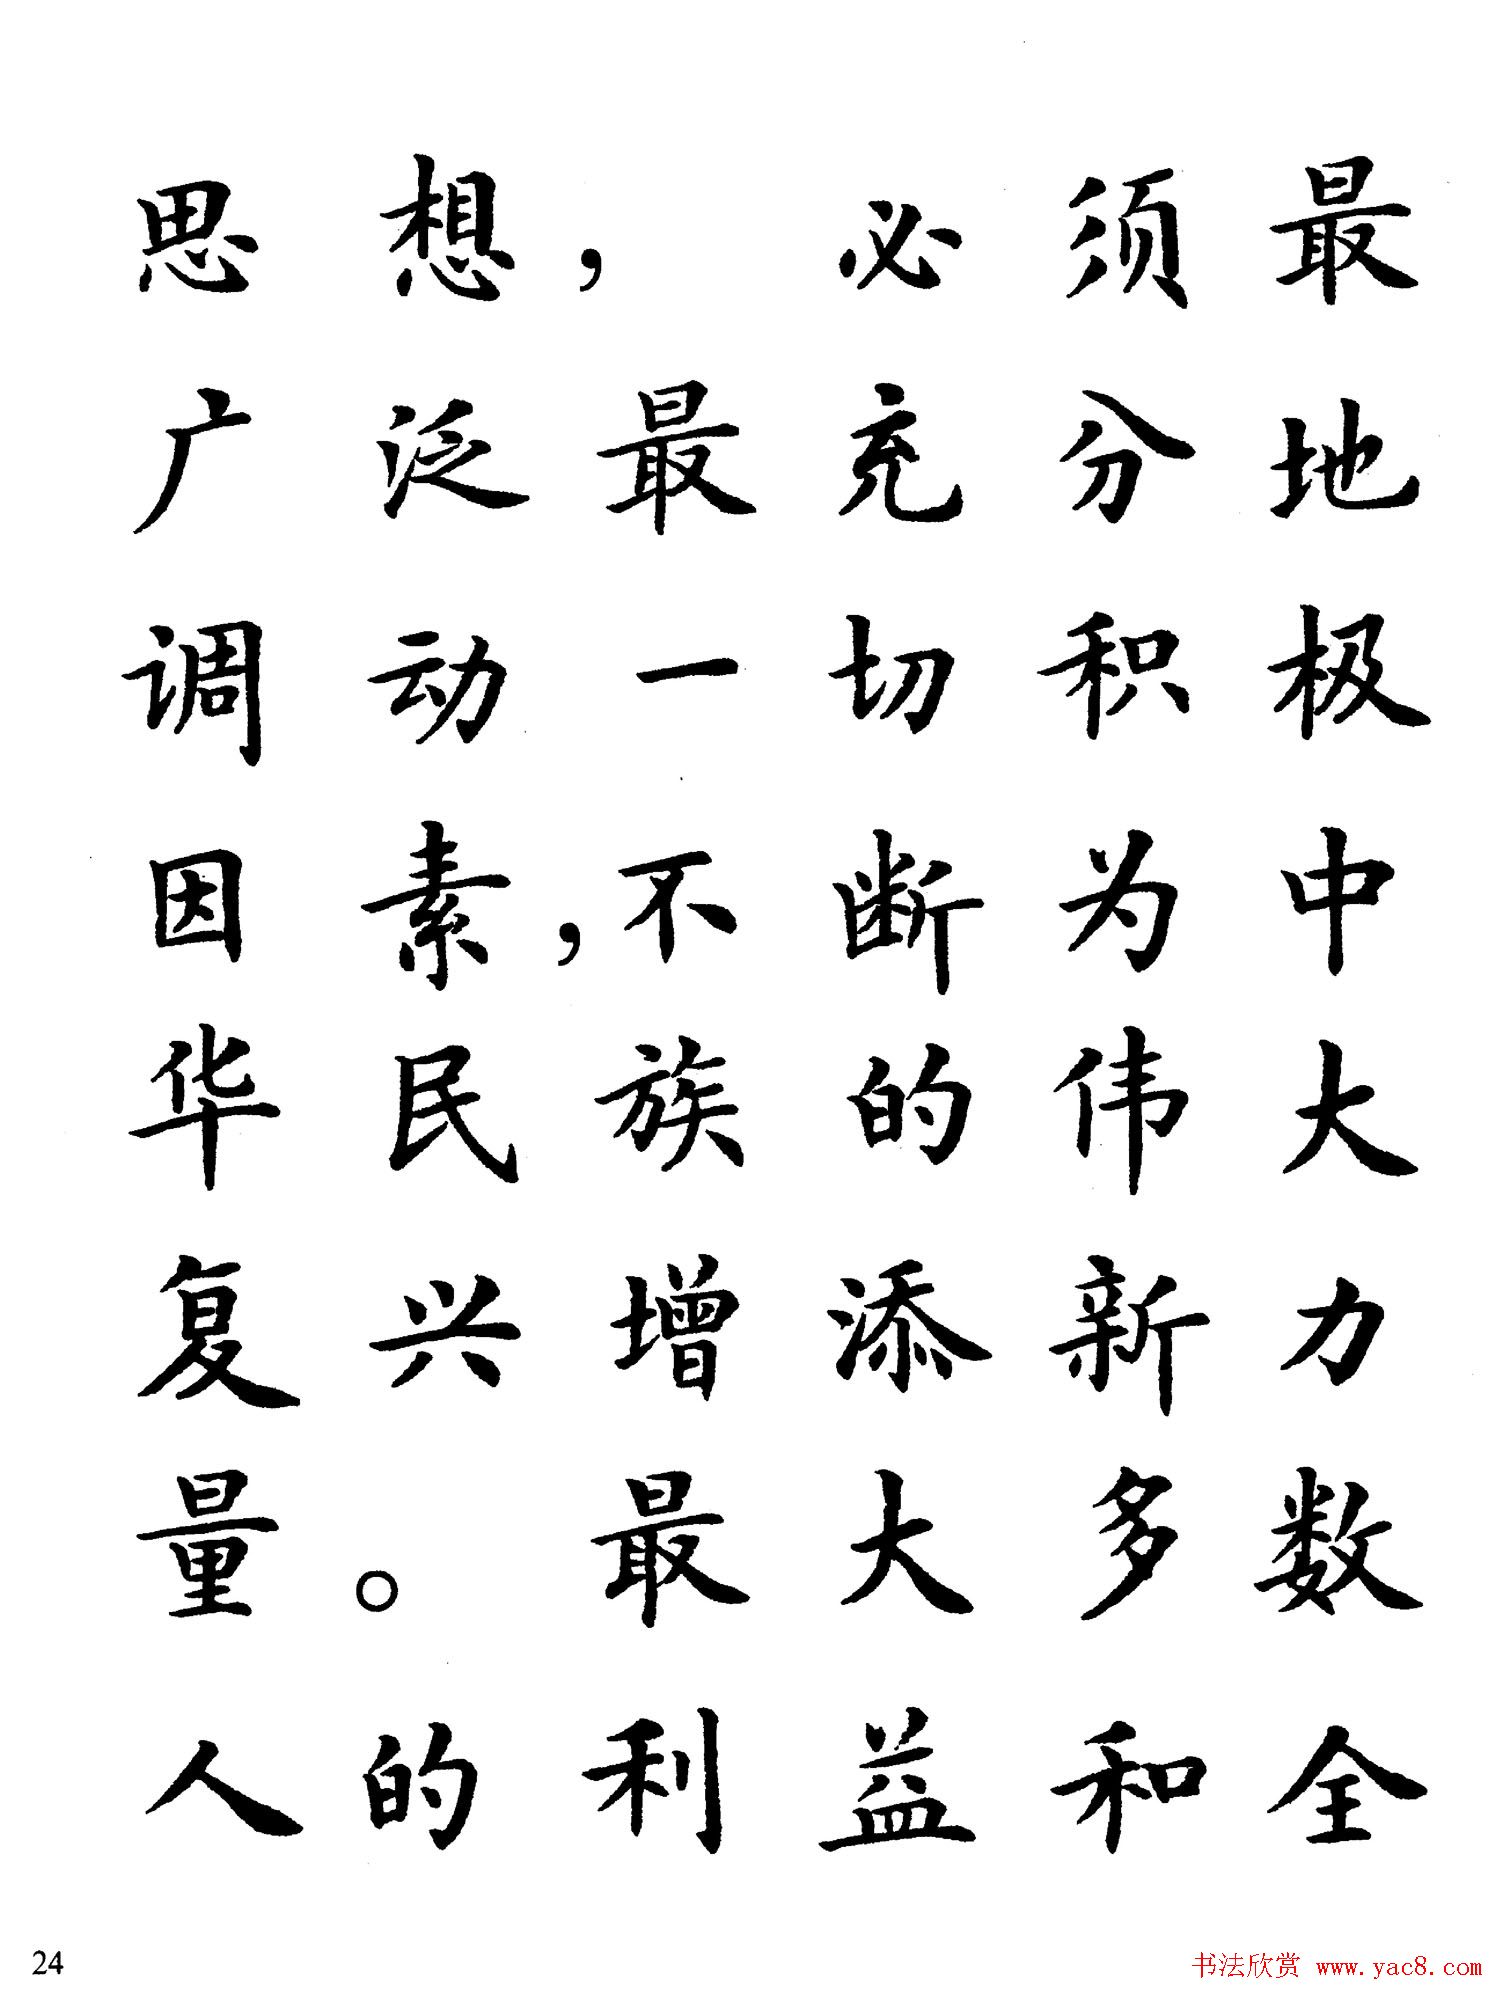 思想，必须最
广泛最充分地
调动一切积极
因素，不断为中
华民族的伟大
复兴增添新力
量。最大多数
人的利益和全
24
书法欣赏 www.yac8.com